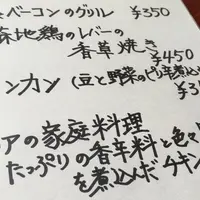 ベーコンのグリル ¥350
地鶏のレバーの
香草焼き
¥450
ンカン (豆と野菜のピリ辛煮込
¥3
アの家庭料理
たっぷりの香辛料と色々
を煮込んだチキン